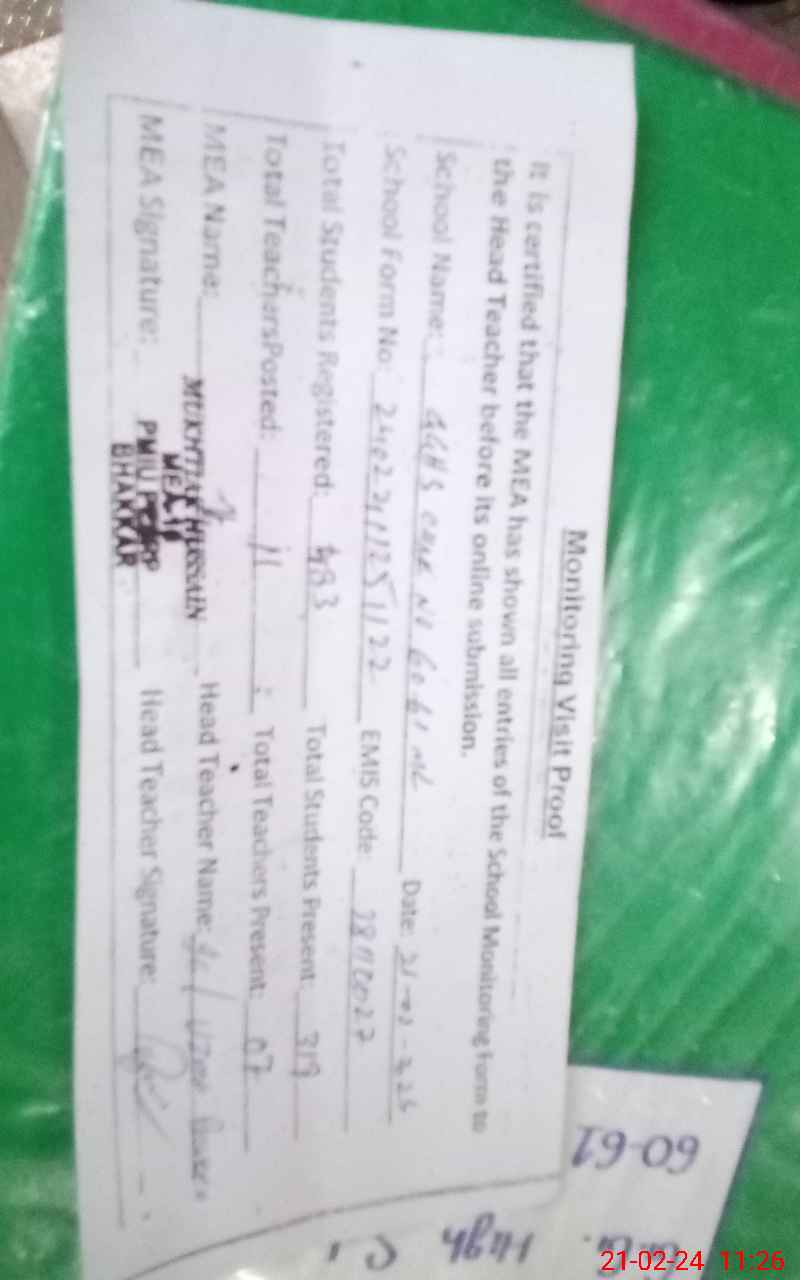 Monitoring Visit Proof
It is certified that the MEA has shown all entries of the School Monitoring Form to
the Head Teacher before its online submission.
School Name: GGHS Chak No 60-61 ML Date: 21-02-
School Form No: EMIS Code:
Total Students Registered: 483 Total Students Present: 319
Total Teachers Posted: 11 Total Teachers Present: 07
MEA Name: MUKHTIAR HUSSAIN Head Teacher Name:
MEA
MEA Signature: PMIU Head Teacher Signature:
BHAKKAR
60-61
High
21-02-24 11:26